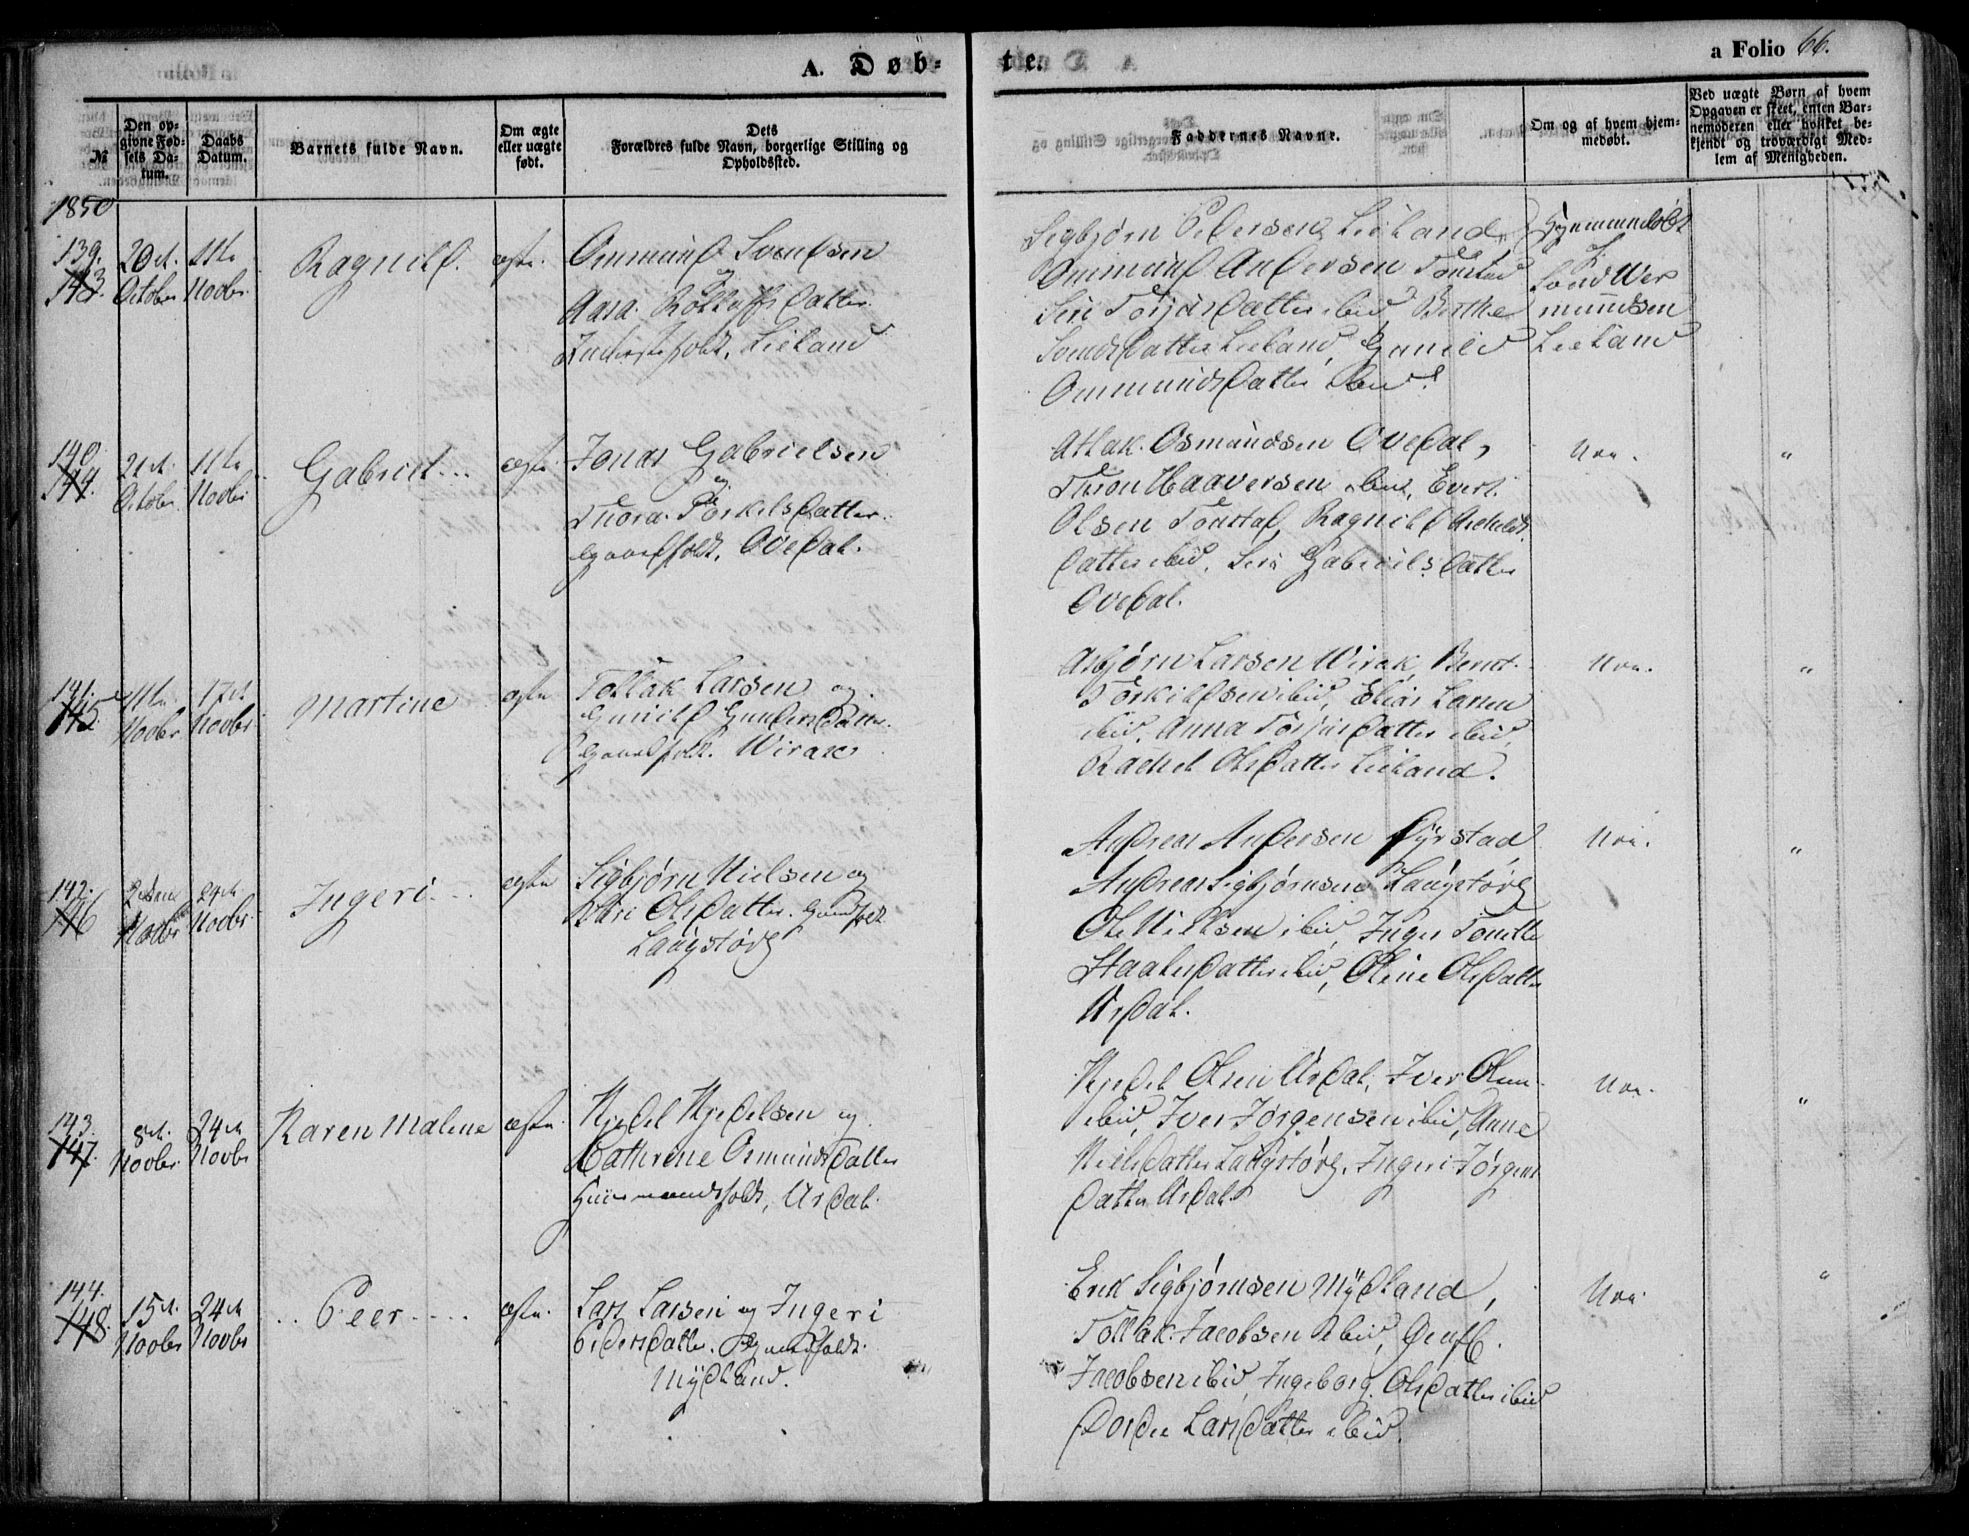 A. Døb-
te.
a Folio 66.
№
Den op-
givne Fød-
sels Da-
tum.
Daabs
Datum.
Barnets fulde Navn.
Om ægte
eller uægte
født.
Dets
Forældres fulde Navn, borgerlige Stilling og
Opholdssted.
Faddernes Navne.
Om og af hvem hjem-
medøbt.
Ved uægte Børn af hvem
Opgaven er skeet, enten Bar-
nemoderen eller hvilket be-
kjendt og troværdigt Med-
lem af Menigheden.
1850
139.
143.
20de
October
11te
Novbr.
Ragnild.
ægte.
Ommund Svendsen
og
Aasa Rolleffsdatter
Lieland
Sigbjørn Pedersen Lieland,
Ommund Andersen Tonstad
Siri Torjusdatter ibid, Berthe
Svendsdatter Lieland, Gunild
Ommundsdatter ibid.
Hjemmedøbt
Wer
mundsen
Lieland
140.
144.
21de
October
11te
Novbr.
Gabriel
ægte.
Jonas Gabrielsen
og
Thora Torkelsdatter
Gaardfolk, Ovedal.
Atlak Osmundsen Ovedal,
Thron Haaversen ibid, Evert
Olsen Tonstad, Ragnild
datter ibid, Siri Gabrielsdatter
Ovedal.
Nei.
"
141.
145.
11te
Novbr
17de
Novbr
Martine
ægte
Tollak Larsen og
Gunild Gundersdatter
Gaardfolk. Wirak
Asbjørn Larsen Wirak, Bernt
Torkildsen ibid, Elias Larsen
ibid, Anna Torjusdatter ibid,
Rachel Olsdatter Lieland.
Nei.
"
142.
146
Novbr
24de
Novbr
Ingeri
ægte
Sigbjørn Nielsen og
Kari Olsdatter. Gaardfolk
Laugstørg
Andreas Andersen Dyrstad
Andreas Sigbjørnsen Laugstørg
Ole Nilssen ibid, Inger Tonette
Staalesdatter ibid, Oline Olsdatter
Urdal.
Nei.
"
143.
147.
8de
Novbr.
24de
Novbr
Karen Malene
ægte.
Kjedel Kjedelsen og
Cathrine Osmundsdatter
Huusmandsfolk, Urdal.
Kjedel Olsen Urdal, Iver Olsen
ibid, Iver Jørgensen ibid, Anne
Nielsdatter Laugstørg, Ingeri Jørgens
datter Urdal.
Nei.
"
144.
148.
15de
Novbr
24de
Novbr
Peer
ægte.
Lars Larsen og Ingeri
Pedersdatter. Gaardfolk.
Mydland.
Erik Sigbjørnsen Mydland,
Tollak Jacobsen ibid,
Jacobsen ibid, Ingeborg Olsdatter ibid
Dordee Larsdatter ibid.
Nei.
"